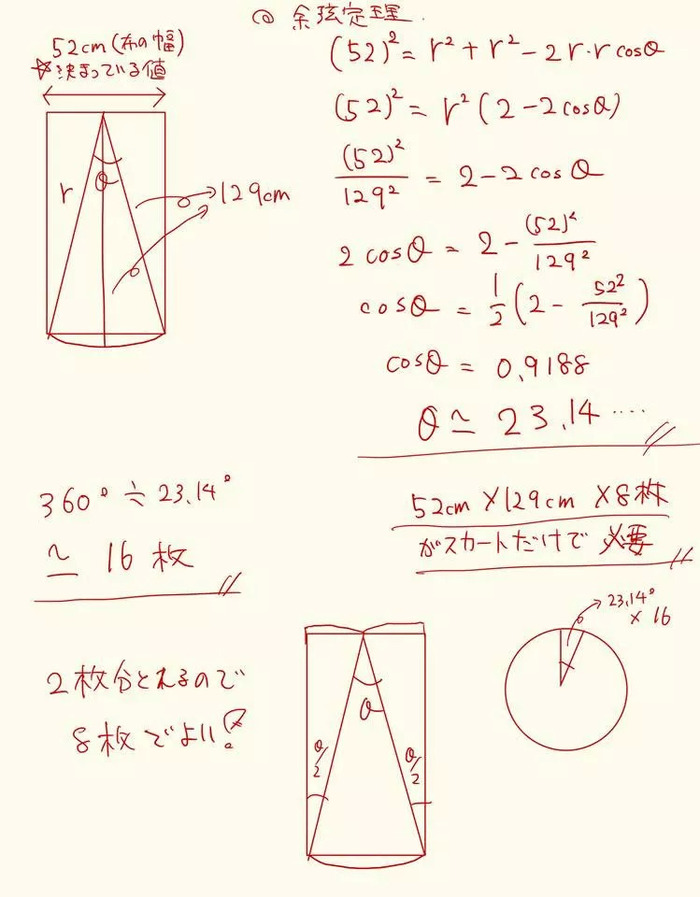 ◎ 余弦定理.
52cm (布の幅)
☆決まっている値
r
θ
129cm
(52)² = r² + r² - 2r・r cosθ
(52)² = r² (2 - 2cosθ)
(52)²/129² = 2 - 2cosθ
2cosθ = 2 - (52)²/129²
cosθ = 1/2 (2 - 52²/129²)
cosθ = 0.9188
θ ≃ 23.14 ....
360° ÷ 23.14°
≃ 16 枚
52cm × 129cm × 8枚
がスカートだけで必要
2枚分とれるので
8枚でよい!?
θ
θ/2
θ/2
23.14°
× 16